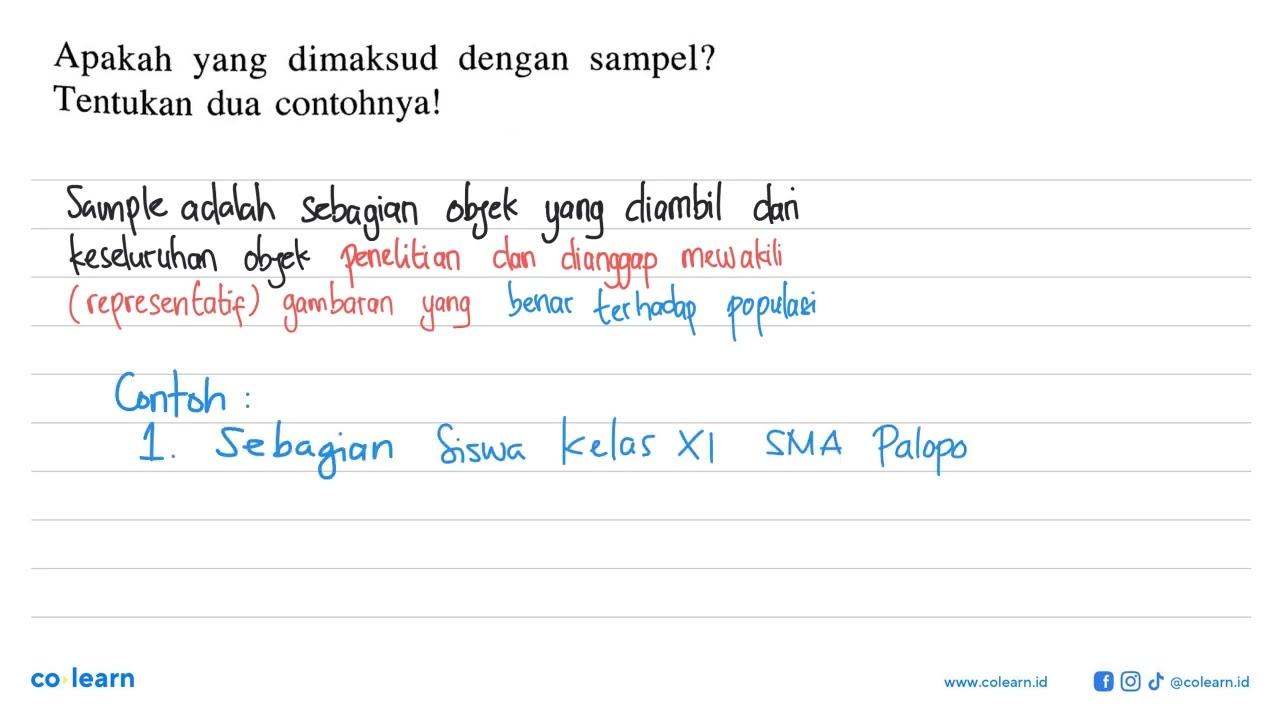 Apakah yang dimaksud dengan sampel?
Tentukan dua contohnya!
Sample adalah sebagian objek yang diambil dari
keseluruhan objek penelitian dan dianggap mewakili
(representatif) gambaran yang benar terhadap populasi
Contoh :
1. Sebagian Siswa kelas XI SMA Palopo
co learn
www.colearn.id
@colearn.id